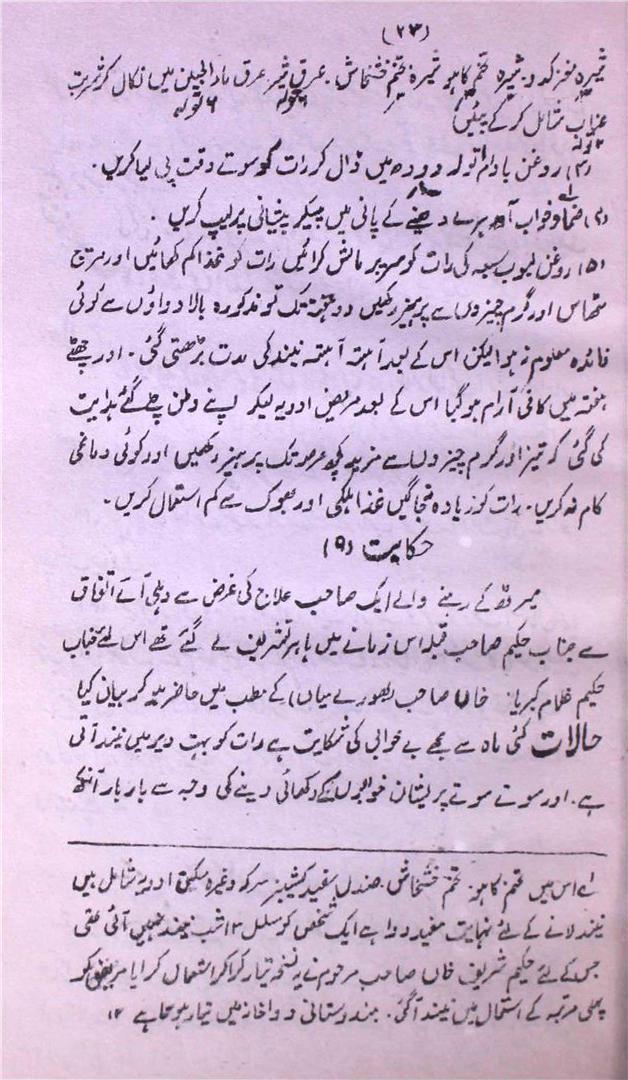 (۲۳)
شیرہ مغز کدو، شیرہ تخم کاہو شیرہ تخم خشخاش ۔ عرق شیر عرق ماءالجبن میں نکال کر شربت
عناب شامل کر کے پئیں
(۳) روغن بادام اتولہ دودھ میں ڈال کر رات کو سوتے وقت پی لیا کریں ۔
(۴) ضماد خواب آور ہرے دھنئے کے پانی میں پیسکر پیشانی پر لیپ کریں ۔
(۵) روغن لبوب سبعہ کی رات کو سر پر مالش کرائیں رات کو غذا کم کھائیں اور مرچ
مٹھاس اور گرم چیزوں سے پرہیز رکھیں دو ہفتہ تک تو مذکورہ بالا دواؤں سے کوئی
فائدہ معلوم نہ ہوا لیکن اس کے بعد آہستہ آہستہ نیند کی مدت بڑھتی گئی ۔ اور چھٹے
ہفتہ میں کافی آرام ہو گیا اس کے بعد مریض ادویہ لیکر اپنے وطن چلے گئے ہدایت
کی گئی کہ تیز اور گرم چیزوں سے مزید کچھ عرصہ تک پرہیز رکھیں اور کوئی دماغی
کام نہ کریں ۔ رات کو زیادہ نہ جاگیں غذا ہلکی اور بھوک سے کم استعمال کریں ۔
حکایت (۹)
میرٹھ کے رہنے والے ایک صاحب علاج کی غرض سے دہلی آئے اتفاق
سے جناب حکیم صاحب قبلہ اس زمانے میں باہر تشریف لے گئے تھے اس لئے جناب
حکیم غلام کبریا خاں صاحب (بھورے میاں) کے مطب میں حاضر ہو کر بیان کیا
حالات کئی ماہ سے مجھے بے خوابی کی شکایت ہے رات کو بہت دیر میں نیند آتی
ہے ۔ اور سوتے سوتے پریشان خوابوں کے دکھائی دینے کی وجہ سے بار بار آنکھ
لے اس میں تخم کاہو تخم خشخاش ۔ صندل سفید کشنیز سرکہ وغیرہ مسکن ادویہ شامل ہیں
نیند لانے کے لئے نہایت مفید دوا ہے ایک شخص کو مسلسل ۱۳ شب نیند نہیں آئی تھی
جس کے لئے حکیم شریف خاں صاحب مرحوم نے یہ نسخہ تیار کرا کر استعمال کرایا مریض کو
پہلی مرتبہ کے استعمال میں نیند آ گئی ۔ ہندوستانی دواخانہ میں تیار ہوتا ہے ۱۲